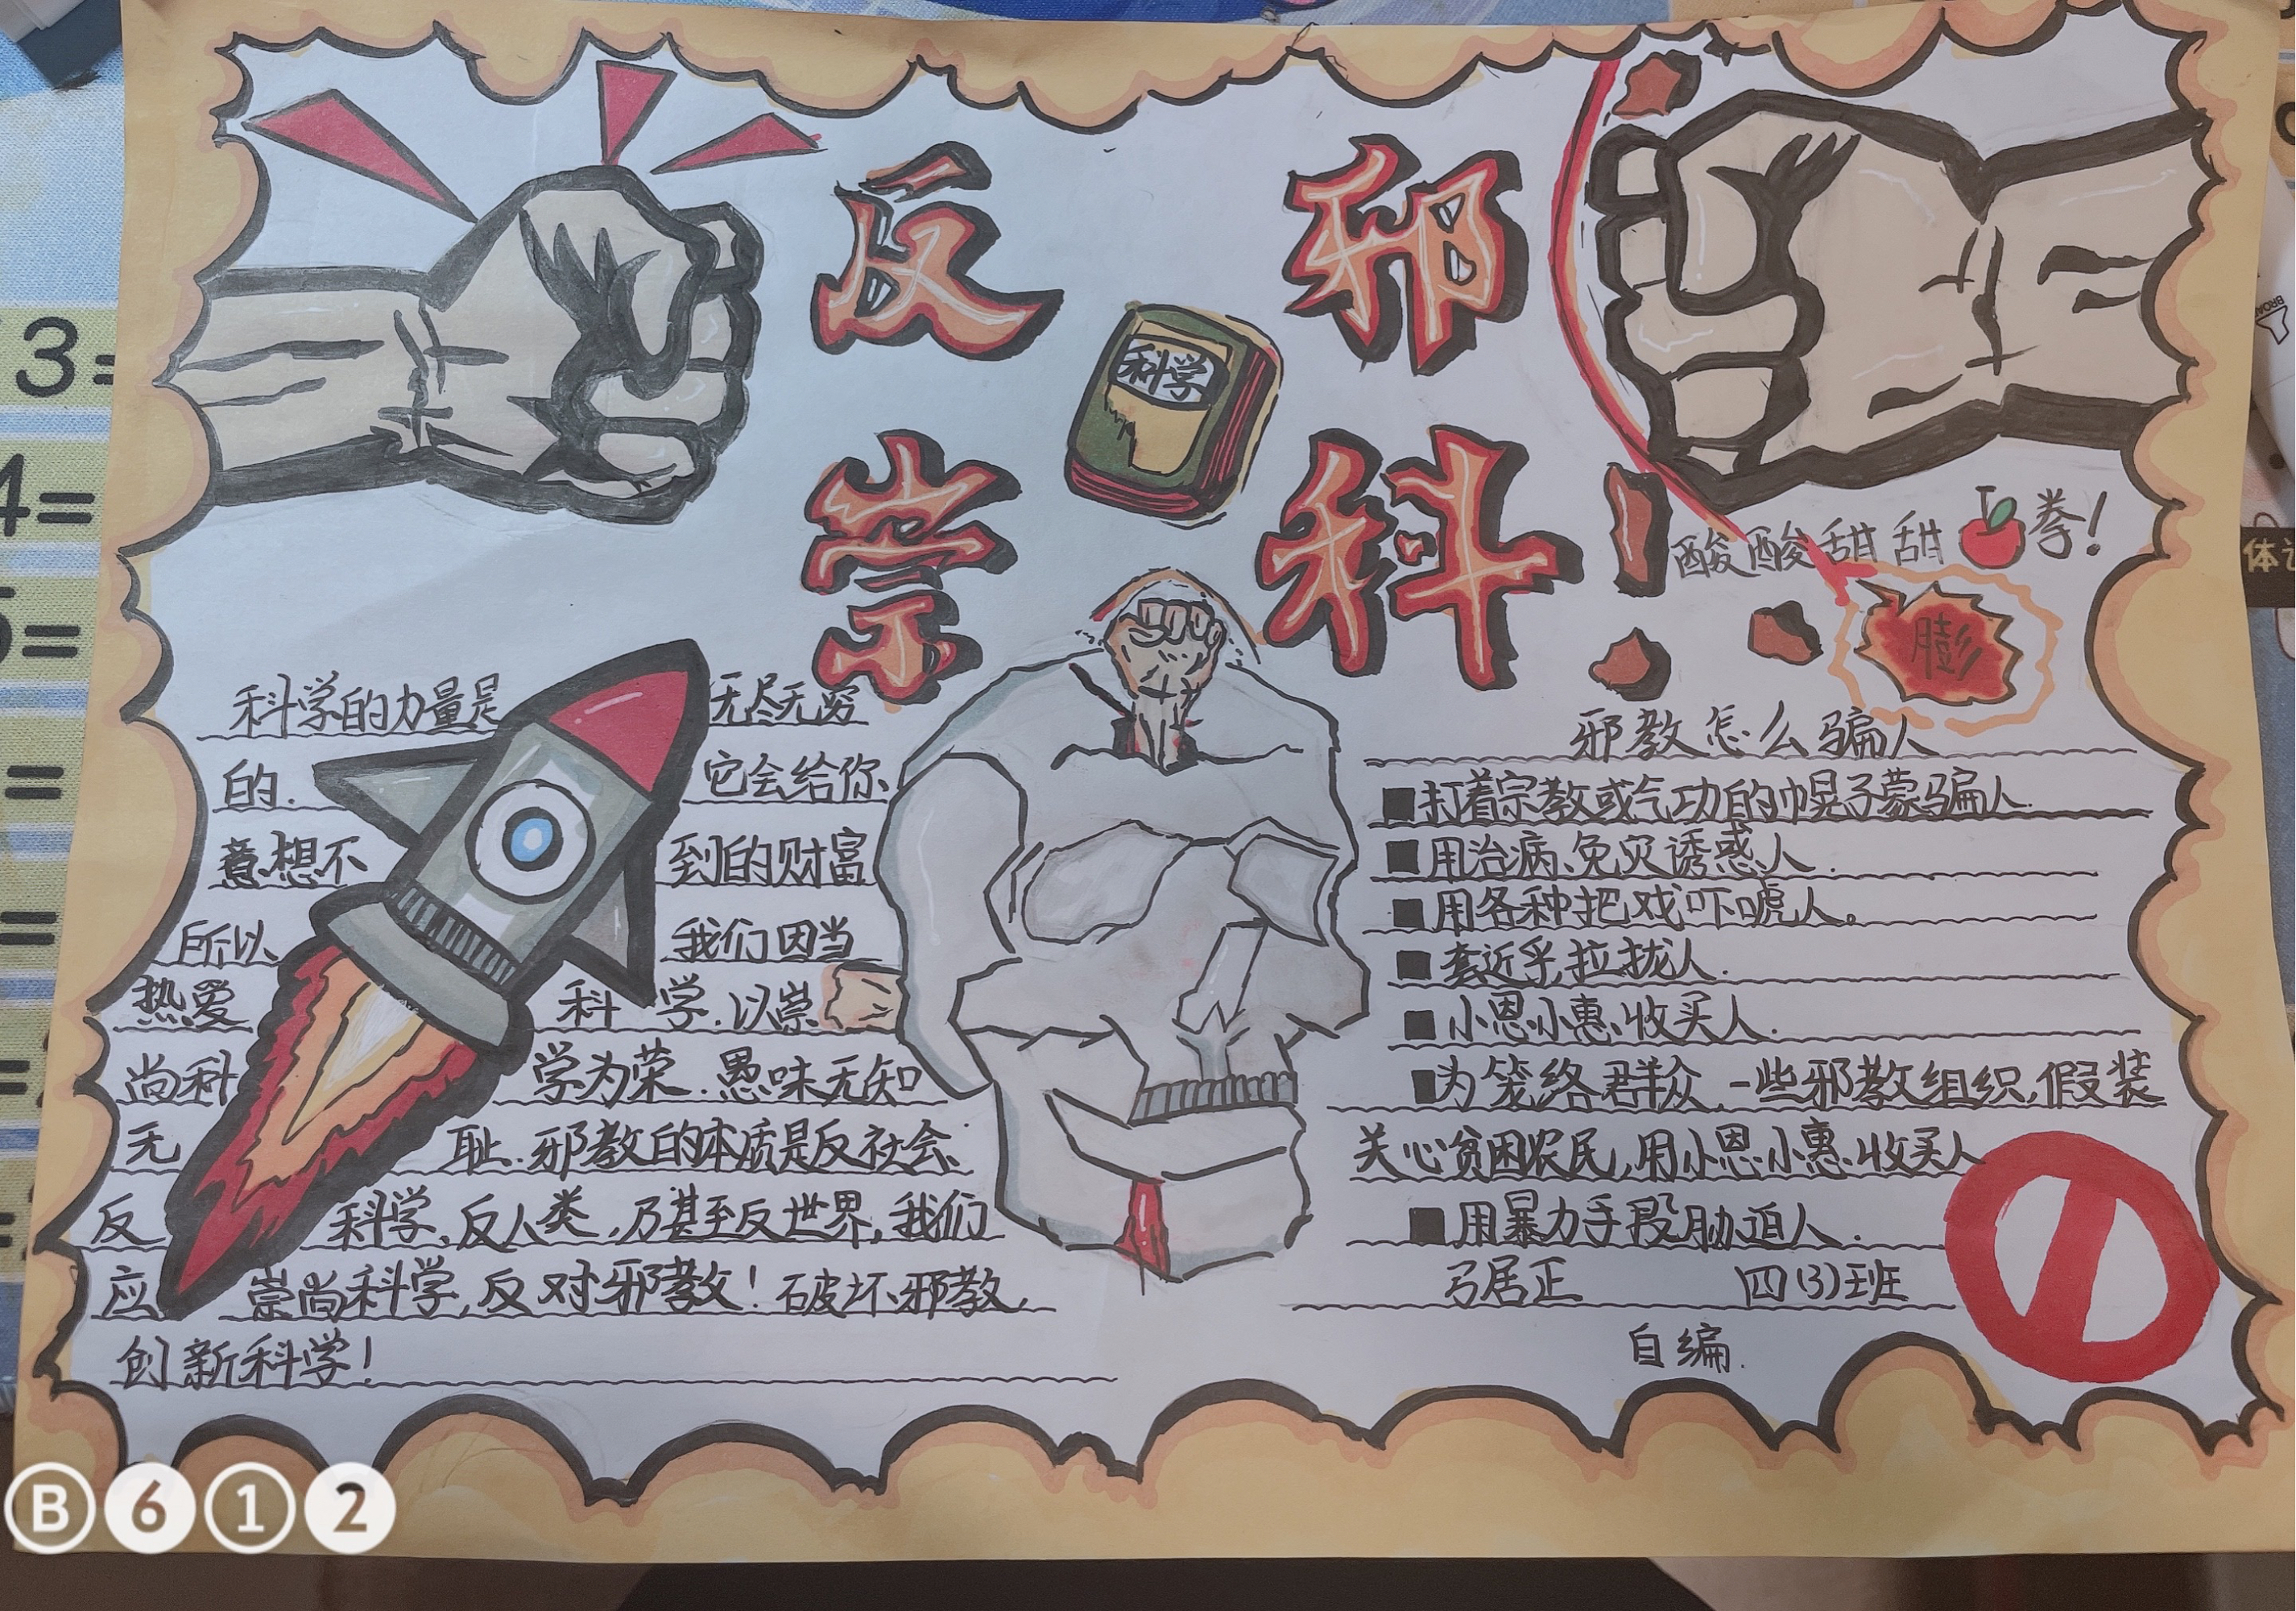 反 邪
科学
崇 科!
酸酸甜甜 拳!
膨
科学的力量是 无尽无穷
的. 它会给你
意想不 到的财富
所以 我们因当
热爱 科学.以崇
尚科 学为荣.愚味无知
无 耻.邪教的本质是反社会、
反 科学、反人类,乃甚至反世界,我们
应 崇尚科学,反对邪教!破坏邪教,
创新科学!
邪教怎么骗人
■打着宗教或气功的幌子蒙骗人.
■用治病、免灾诱惑人.
■用各种把戏吓唬人。
■套近乎,拉拢人.
■小恩小惠,收买人.
■为笼络群众,一些邪教组织,假装
关心贫困农民,用小恩小惠,收买人
■用暴力手段胁迫人.
弓居正 四(3)班
自编.
3=
4=
5=
=
=
=
体
B612